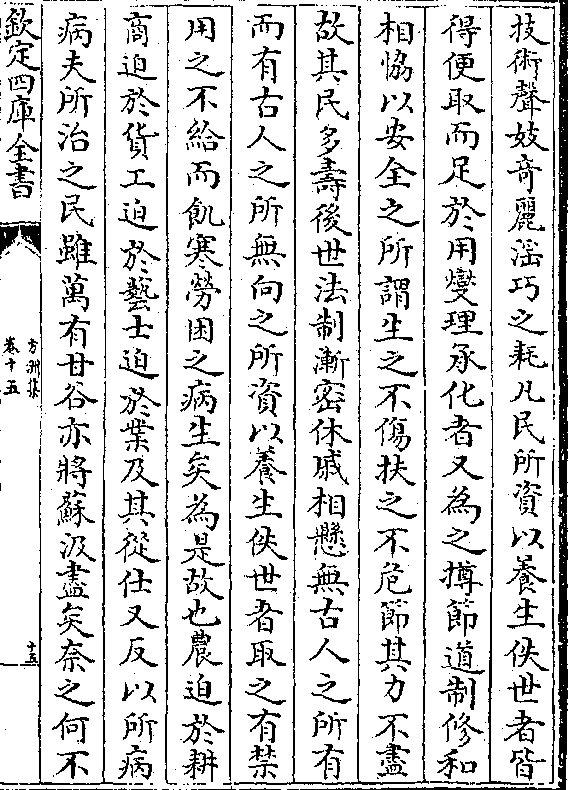 技術聲妓竒麗滛巧之耗凡民所資以養生佚世者皆
得便取而足於用燮理承化者又為之撙節道制修和
相恊以安全之所謂生之不傷扶之不危節其力不盡
故其民多壽後世法制漸密休戚相懸無古人之所有
而有古人之所無向之所資以養生佚世者取之有禁
用之不給而飢寒勞困之病生矣為是故也農迫於耕
商迫於貨工迫於藝士迫於業及其從仕又反以所病
病夫所治之民雖萬有甘谷亦將蘇汲盡矣奈之何不
欽定四庫全書
方洲集
卷十五
十五